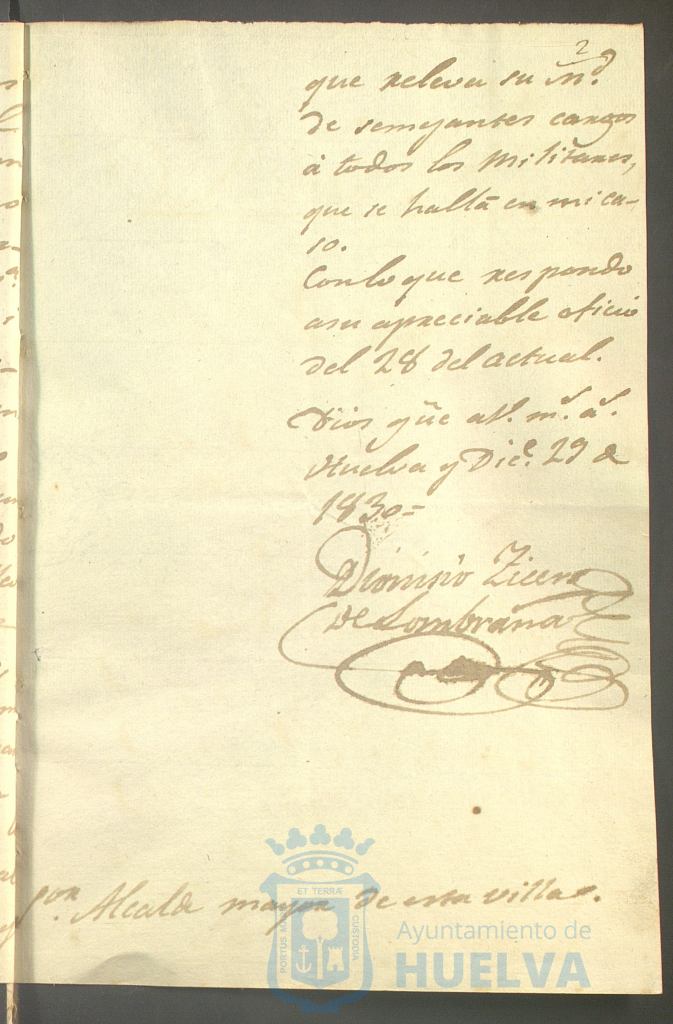 2
que releva su M.d
de semejantes cargos
á todos los Militares,
que se hallā en mi ca-
so.
Con lo que respondo
a su apreciable oficio
del 28 del actual.
Dios gūe a V. m.s a.s
Huelva y Dic.e 29 de
1830=
Dionisio
de Lombraña
Sor. Alcalde mayor de esta villa.
ET TERRÆ
PORTUS MARIS
CUSTODIA
Ayuntamiento de
HUELVA